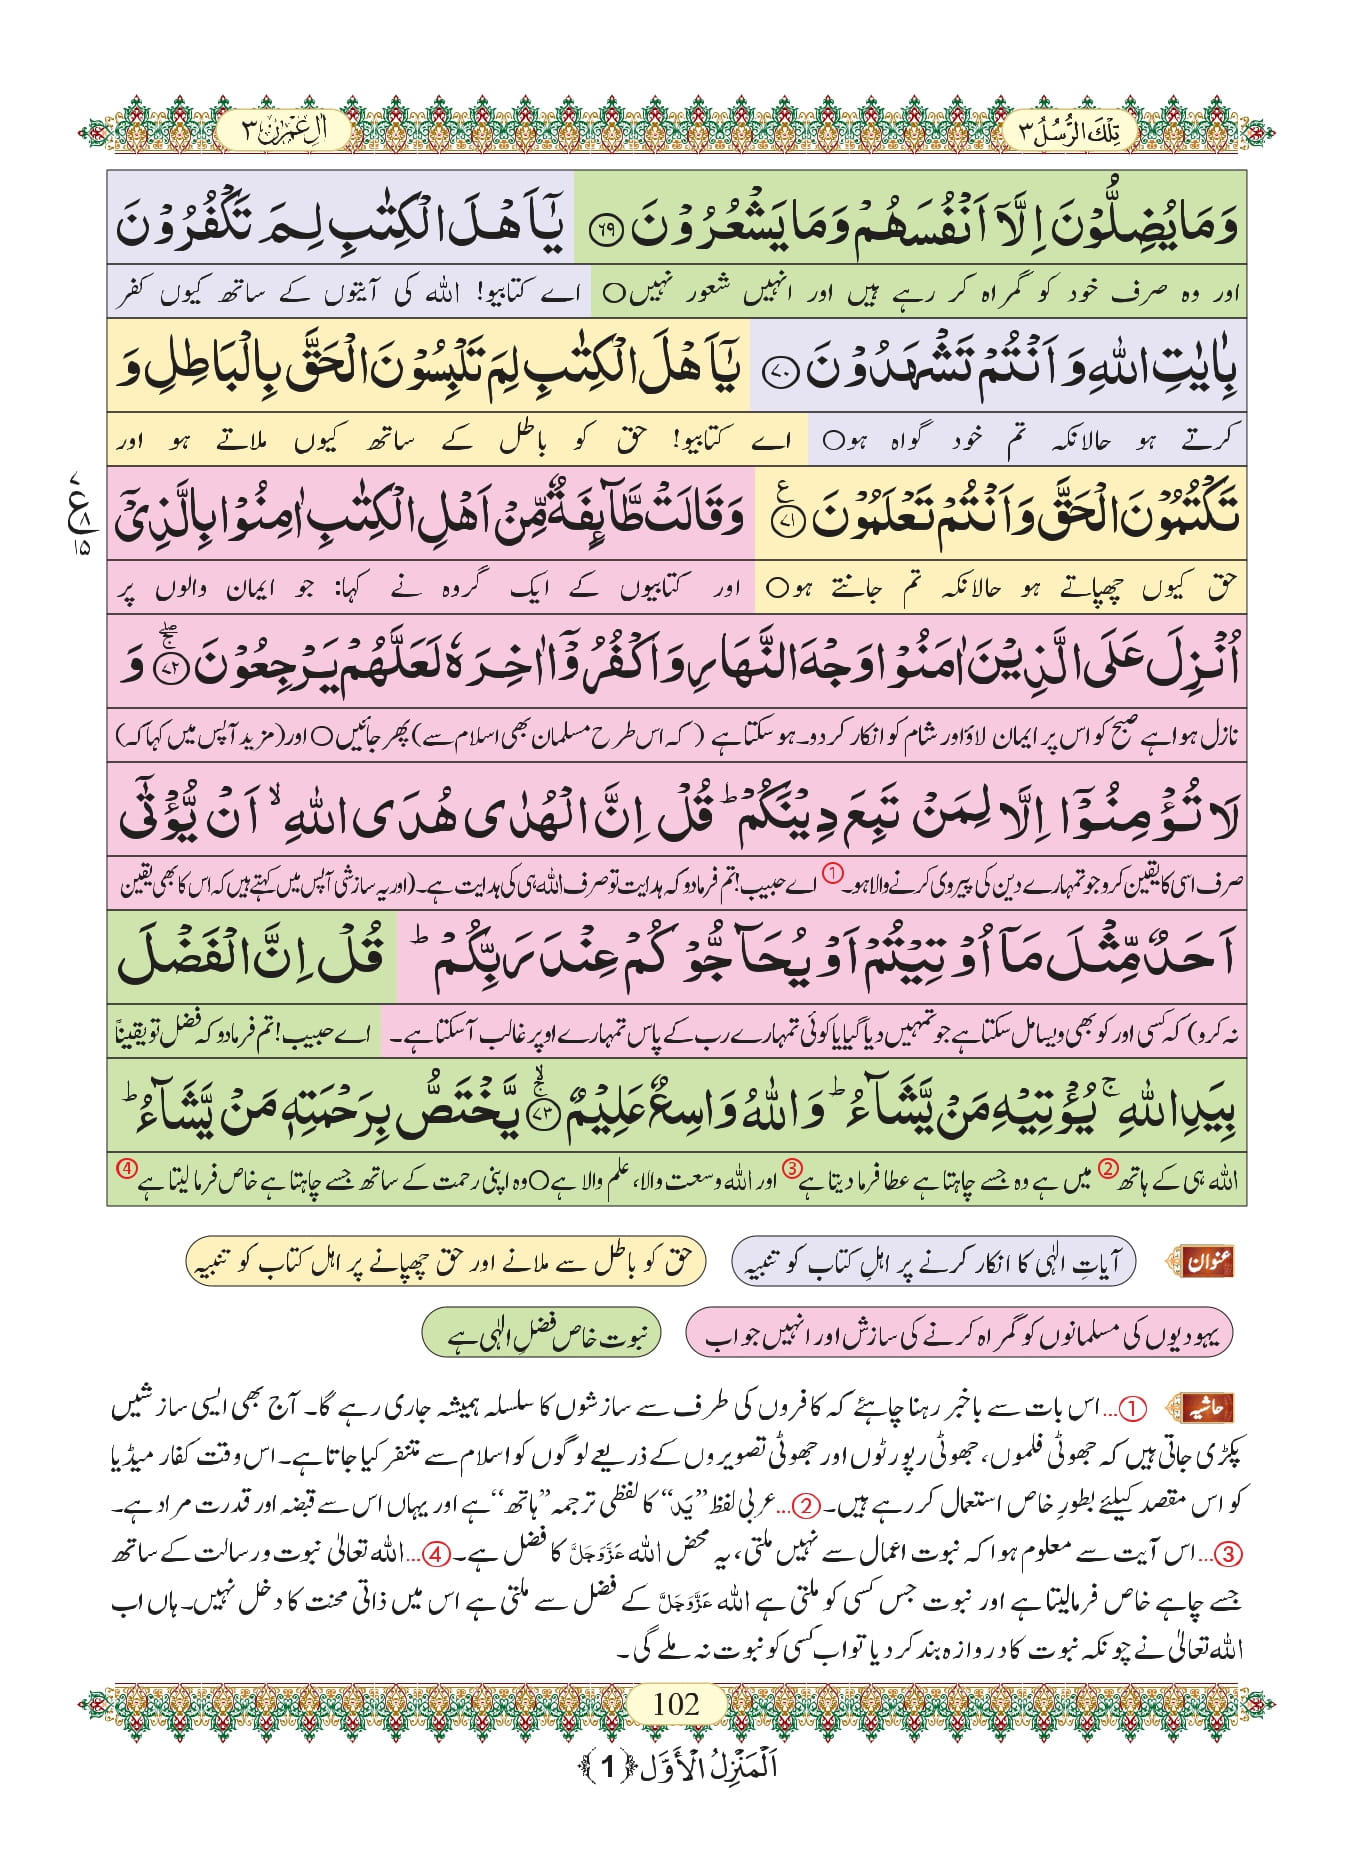 تِلْكَ الرُّسُلُ ٣
اٰلِ عِمْرٰن ٣
وَمَا يُضِلُّوْنَ اِلَّاۤ اَنْفُسَهُمْ وَمَا يَشْعُرُوْنَ ﴿٦٩﴾ يٰۤاَهْلَ الْكِتٰبِ لِمَ تَكْفُرُوْنَ
اور وہ صرف خود کو گمراہ کر رہے ہیں اور انہیں شعور نہیں○ اے کتابیو! اللہ کی آیتوں کے ساتھ کیوں کفر
بِاٰيٰتِ اللّٰهِ وَ اَنْتُمْ تَشْهَدُوْنَ ﴿٧٠﴾ يٰۤاَهْلَ الْكِتٰبِ لِمَ تَلْبِسُوْنَ الْحَقَّ بِالْبَاطِلِ وَ
کرتے ہو حالانکہ تم خود گواہ ہو○ اے کتابیو! حق کو باطل کے ساتھ کیوں ملاتے ہو اور
تَكْتُمُوْنَ الْحَقَّ وَ اَنْتُمْ تَعْلَمُوْنَ ﴿٧١﴾ ع وَ قَالَتْ طَّآىِٕفَةٌ مِّنْ اَهْلِ الْكِتٰبِ اٰمِنُوْا بِالَّذِیْۤ
٧
ع
٨
١٥
حق کیوں چھپاتے ہو حالانکہ تم جانتے ہو○ اور کتابیوں کے ایک گروہ نے کہا: جو ایمان والوں پر
اُنْزِلَ عَلَى الَّذِيْنَ اٰمَنُوْا وَجْهَ النَّهَارِ وَ اكْفُرُوْۤا اٰخِرَهٗ لَعَلَّهُمْ يَرْجِعُوْنَ ﴿٧٢﴾ۚۖ وَ
نازل ہوا ہے صبح کو اس پر ایمان لاؤ اور شام کو انکار کردو۔ ہو سکتا ہے (کہ اس طرح مسلمان بھی اسلام سے) پھر جائیں○ اور (مزید آپس میں کہا کہ)
لَا تُؤْمِنُوْۤا اِلَّا لِمَنْ تَبِعَ دِيْنَكُمْ ؕ قُلْ اِنَّ الْهُدٰى هُدَى اللّٰهِ ۙ اَنْ يُّؤْتٰۤى
صرف اسی کا یقین کرو جو تمہارے دین کی پیروی کرنے والا ہو۔① اے حبیب! تم فرما دو کہ ہدایت تو صرف اللہ ہی کی ہدایت ہے۔ (اور یہ سازشی آپس میں کہتے ہیں کہ اس کا بھی یقین
اَحَدٌ مِّثْلَ مَاۤ اُوْتِيْتُمْ اَوْ يُحَآجُّوْكُمْ عِنْدَ رَبِّكُمْ ؕ قُلْ اِنَّ الْفَضْلَ
نہ کرو) کہ کسی اور کو بھی ویسا مل سکتا ہے جو تمہیں دیا گیا یا کوئی تمہارے رب کے پاس تمہارے اوپر غالب آسکتا ہے۔ اے حبیب! تم فرما دو کہ فضل تو یقیناً
بِيَدِ اللّٰهِ ۚ يُؤْتِيْهِ مَنْ يَّشَآءُ ؕ وَ اللّٰهُ وَاسِعٌ عَلِيْمٌ ﴿٧٣﴾ۚۙ يَّخْتَصُّ بِرَحْمَتِهٖ مَنْ يَّشَآءُ ؕ
اللہ ہی کے ہاتھ② میں ہے وہ جسے چاہتا ہے عطا فرما دیتا ہے③ اور اللہ وسعت والا، علم والا ہے○ وہ اپنی رحمت کے ساتھ جسے چاہتا ہے خاص فرما لیتا ہے④
عنوان آیاتِ الٰہی کا انکار کرنے پر اہلِ کتاب کو تنبیہ حق کو باطل سے ملانے اور حق چھپانے پر اہل کتاب کو تنبیہ
یہودیوں کی مسلمانوں کو گمراہ کرنے کی سازش اور انہیں جواب نبوت خاص فضلِ الٰہی ہے
حاشیہ ①...اس بات سے باخبر رہنا چاہئے کہ کافروں کی طرف سے سازشوں کا سلسلہ ہمیشہ جاری رہے گا۔ آج بھی ایسی سازشیں
پکڑی جاتی ہیں کہ جھوٹی فلموں، جھوٹی رپورٹوں اور جھوٹی تصویروں کے ذریعے لوگوں کو اسلام سے متنفر کیا جاتا ہے۔ اس وقت کفار میڈیا
کو اس مقصد کیلئے بطورِ خاص استعمال کر رہے ہیں۔ ②...عربی لفظ ”یَد“ کا لفظی ترجمہ ”ہاتھ“ ہے اور یہاں اس سے قبضہ اور قدرت مراد ہے۔
③...اس آیت سے معلوم ہوا کہ نبوت اعمال سے نہیں ملتی، یہ محض اللہ عَزَّوَجَلَّ کا فضل ہے۔ ④...اللہ تعالیٰ نبوت و رسالت کے ساتھ
جسے چاہے خاص فرمالیتا ہے اور نبوت جس کسی کو ملتی ہے اللہ عَزَّوَجَلَّ کے فضل سے ملتی ہے اس میں ذاتی محنت کا دخل نہیں۔ ہاں اب
اللہ تعالیٰ نے چونکہ نبوت کا دروازہ بند کر دیا تو اب کسی کو نبوت نہ ملے گی۔
102
اَلْمَنْزِلُ الْاَوَّل ﴿1﴾